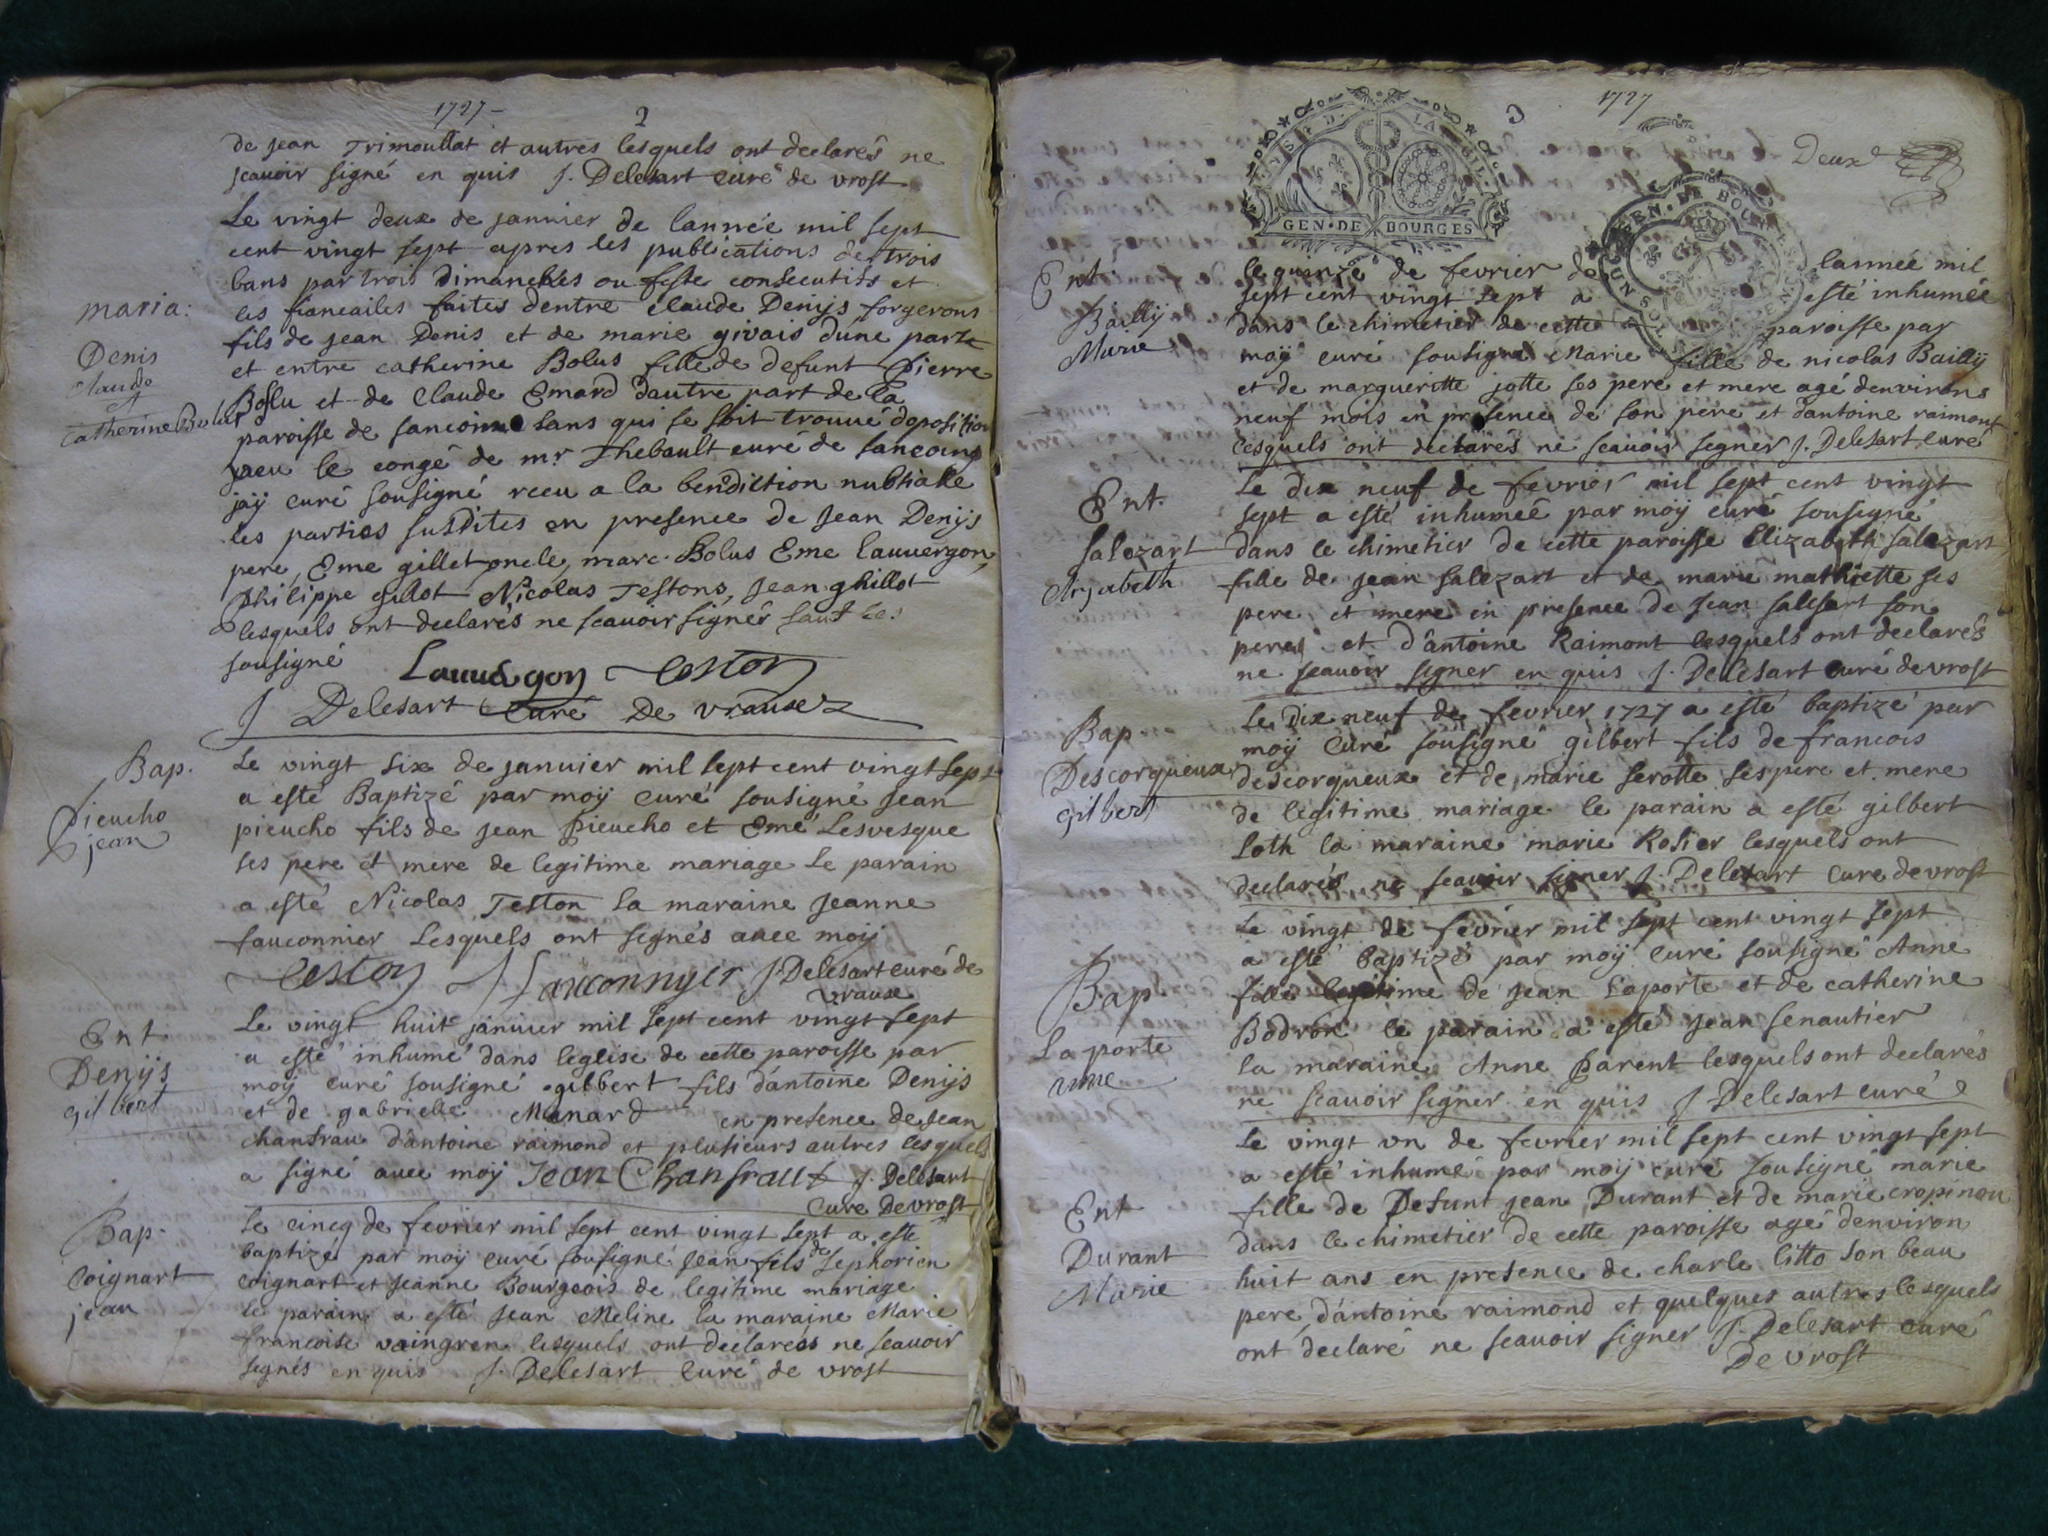 1727
2
de jean Trimoullat et autres lesquels ont declarés ne
scauoir signé en quis J. Delesart curé de vrost
Le vingt deux de januier de lanneé mil sept
cent vingt sept apres les publications de trois
bans par trois dimanches ou feste consecutifs et
les fiancailes faites dentre Claude Denijs forgerons
fils de jean Denis et de marie givais dune parte
et entre catherine Bolus fille de defunt Pierre
Bolu et de Claude Emard dautre part de la
paroisse de sancoins sans qui se soit trouué doposition
jaeu le congé de mr Thebault curé de sancoins
jaij curé sousigné receu a la benediction nubtialle
les parties susdites en presence de jean Denijs
pere, Eme gillet oncle, marc Bolus Eme lauuergon,
philippe gillot Nicolas Testons, jean ghillot
lesquels ont declarés ne scauoir signér sauf les
sousigné Lauuergon Teston
J Delesart Curé De vrause
maria:
Denis
Claude
et
Catherine Bolus
Bap.
pieucho
jean
Le vingt six de januier mil sept cent vingt sept
a esté Baptizé par moij curé sousigné jean
pieucho fils de jean pieucho et Emé Lesvesque
ses pere et mere de legitime mariage le parain
a esté Nicolas Teston la maraine jeanne
fauconnier Lesquels ont signés auec moij
Teston J fauconnyer J. Delesart curé de
vrause
Ent
Denijs
gilbert
Le vingt huit januier mil sept cent vingt sept
a esté inhumé dans leglise de cette paroisse par
moij curé sousigné gilbert fils dantoine Denijs
et de gabrielle Menard en presence de jean
chanfrau dantoine raimond et plusieurs autres lesquels
a signé auec moij Jean Chanfraut J. Delesart
Cure Devrost
Bap.
Coignart
jean
Le cincq de fevrier mil sept cent vingt sept a esté
baptizé par moij curé sousigné jean fils de sephorien
coignart et jeanne Bourgeois de legitime mariage
le parain a esté jean Meline la maraine Marie
francoise vaingren lesquels ont declarés ne scauoir
signés en quis J. Delesart Curé de vrost
3
1727
Deux
GEN. DE BOURGES
Ent
Baillij
Marie
le quinze de fevrier de lanneé mil
sept cent vingt sept a esté inhumée
dans le chimetier de cette paroisse par
moij curé sousigné Marie fille de nicolas Baillij
et de margueritte jotte ses pere et mere agé denvirons
neuf mois en presence de son pere et dantoine raimont
lesquels ont declarés ne scauoir segner J. Delesart curé
Ent.
Salezart
Le dix neuf de fevrier mil sept cent vingt
sept a esté inhumeé par moij curé sousigné
dans le chimetier de cette paroisse Elizabeth salezart
fille de jean salezart et de marie mathiette ses
pere et mere en presence de jean salesart son
pere et dantoine Raimont lesquels ont declarés
ne scauoir signer en quis J. Delesart curé devrost
Bap
Descorqueux
gilbert
Le dix neuf de fevrier 1727 a esté baptizé par
moij Curé sousigné gilbert fils de francois
descorqueux et de marie serotte ses pere et mere
de legitime mariage le parain a esté gilbert
Loth la maraine marie Rosier lesquels ont
declarés ne scauoir signer J. Delesart Cure devrost
Bap
Laporte
anne
Le vingt de fevrier mil sept cent vingt sept
a esté baptizé par moij curé sousigné Anne
fille legitime de jean Laporte et de catherine
Bodron le parain a esté jean senautier
la maraine Anne Parent lesquels ont declarés
ne scauoir signer en quis J Delesart curé
Ent
Durant
Marie
Le vingt vn de fevrier mil sept cent vingt sept
a esté inhumé par moij curé sousigné marie
fille de Defunt jean Durant et de marie cropinou
dans le chimetier de cette paroisse agé denviron
huit ans en presence de charle litto son beau
pere, dantoine raimond et quelques autres lesquels
ont declaré ne scauoir signer J. Delesart curé
De vrost